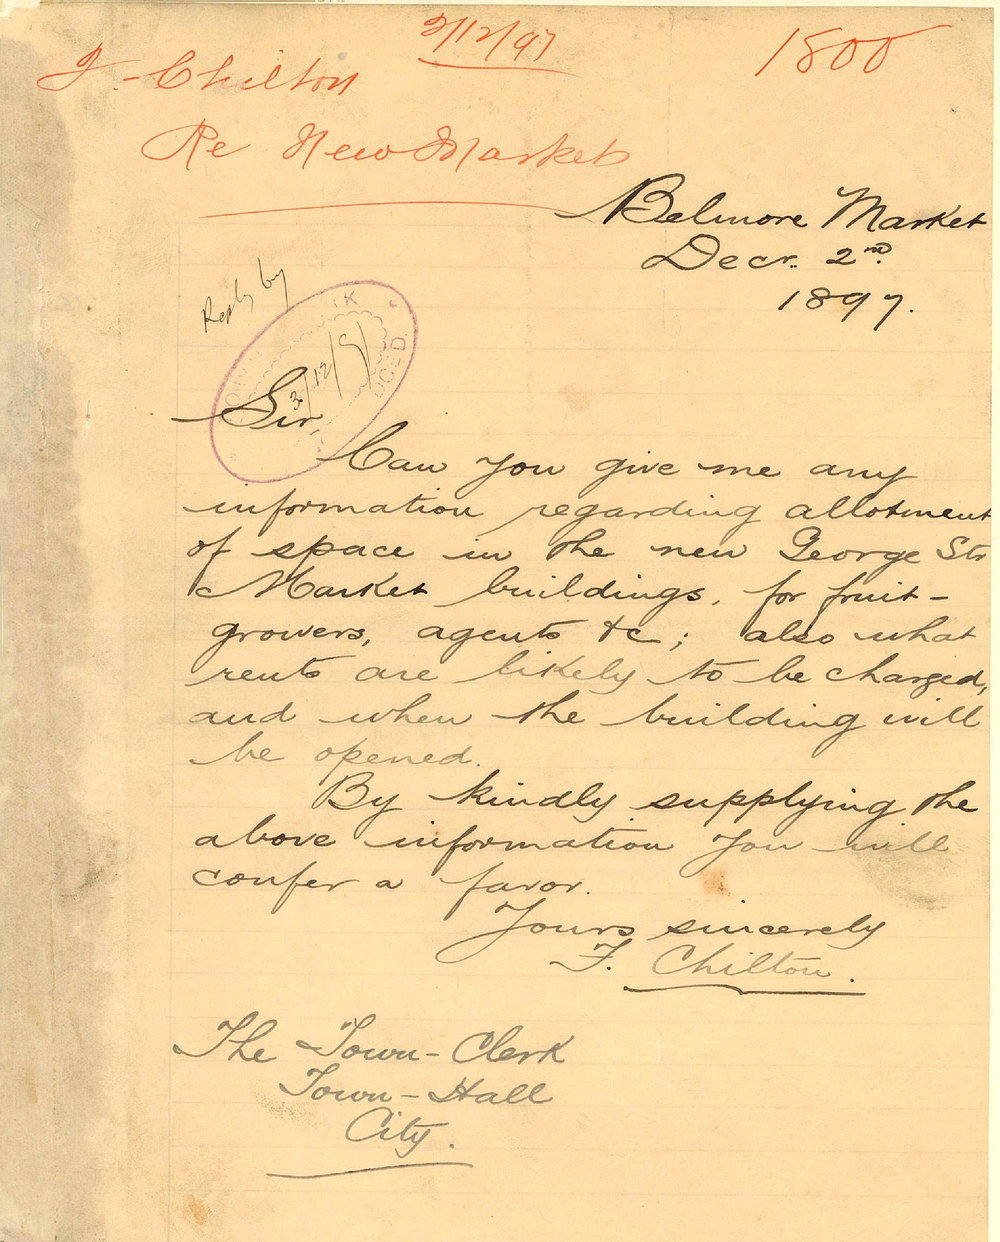 2/12/97
1800
F. Chilton
Re New Market
Belmore Market
Decr. 2nd
1897.
Reply by
3/12/9
Sir,
Can you give me any
information regarding allotment
of space in the new George Str
Market buildings, for fruit-
growers, agents &c; also what
rents are likely to be charged,
and when the building will
be opened.
By kindly supplying the
above information you will
confer a favor.
Yours sincerely
F. Chilton.
The Town-Clerk
Town-Hall
City.